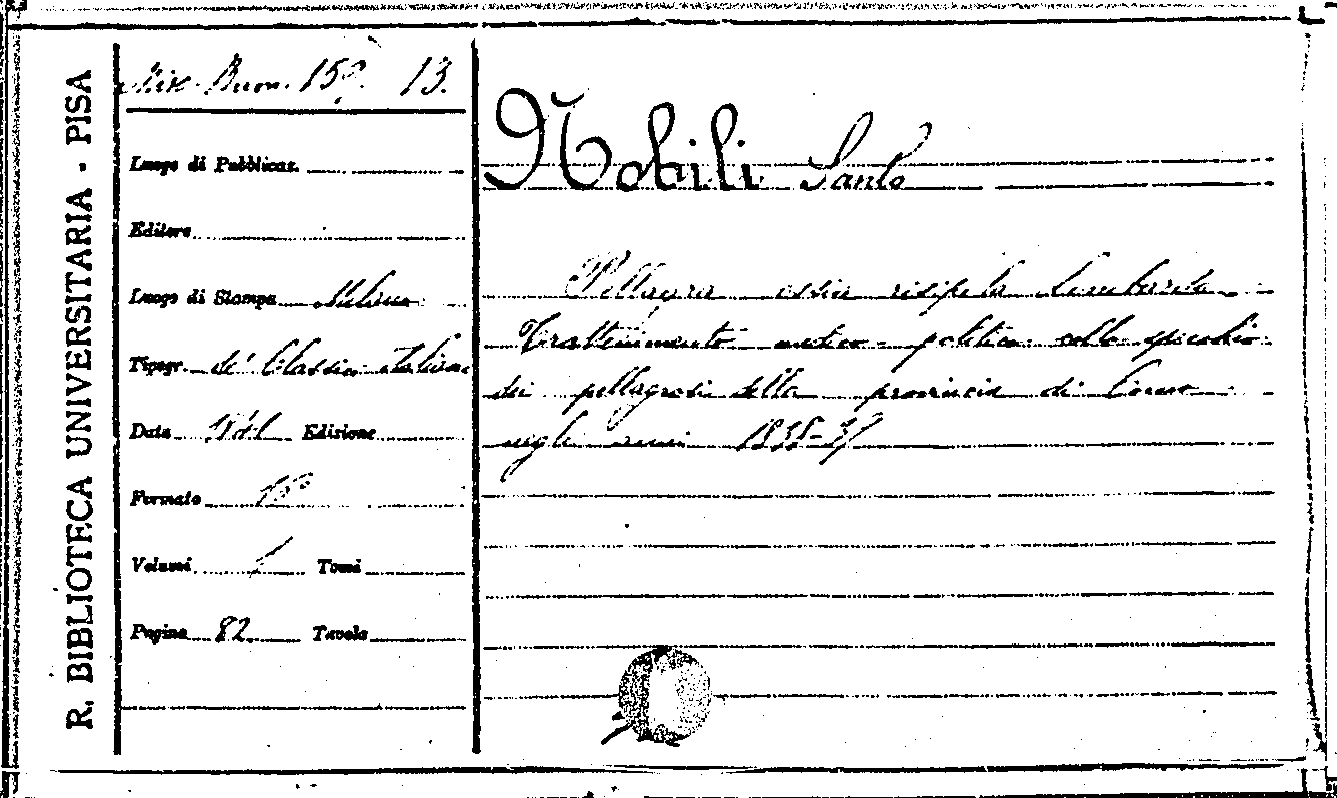 R. BIBLIOTECA UNIVERSITARIA - PISA
Misc. Buon. 159. 13.
Luogo di Pubblicaz.
Editore
Luogo di Stampa Milano
Tipogr. de' Classici italiani
Data 1841 Edizione
Formato
Volumi 1 Tomi
Pagine 82 Tavole
Nobili Santo
Pellagra ossia risipola Lombarda
Trattenimento medico-politico collo specchio
dei pellagrosi della provincia di Como
negli anni